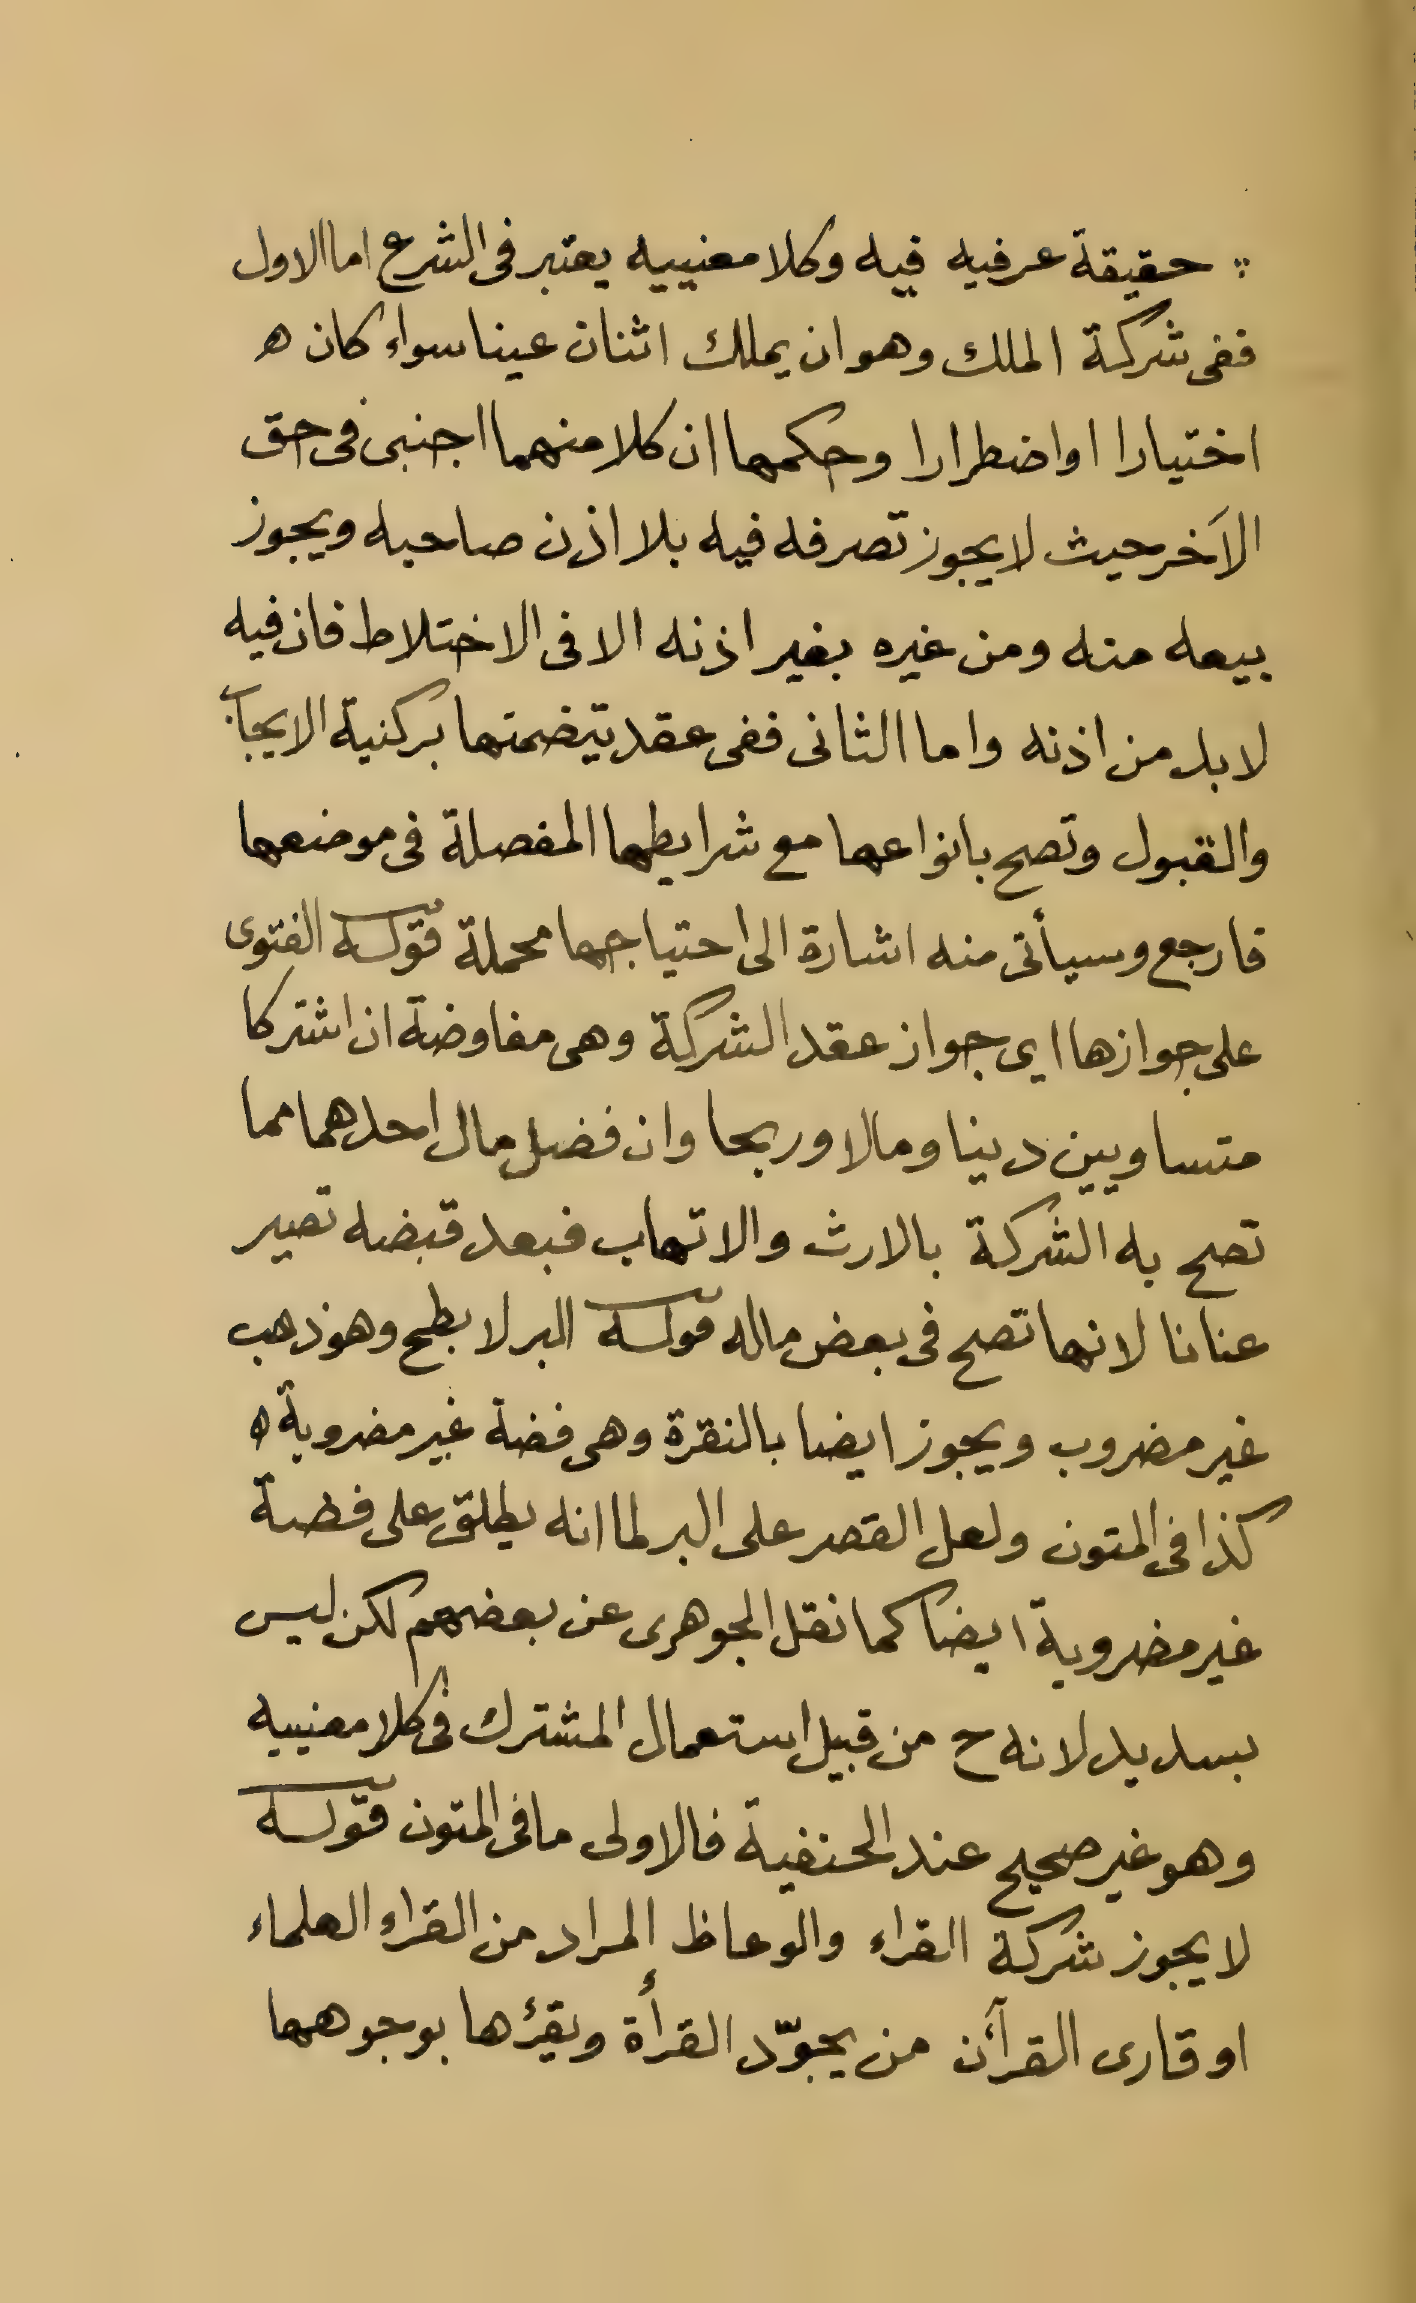 حقيقة عرفيه فيه وكلا معنييه يعتبر فى الشرع اما الاول
ففى شركة الملك وهو ان يملك اثنان عينا سواء كان ه
اختيارا او اضطرارا وحكمها ان كلا منهما اجنبى فى حق
الآخر حيث لا يجوز تصرفه فيه بلا اذن صاحبه ويجوز
بيعه منه ومن غيره بغير اذنه الا فى الاختلاط فان فيه
لا بد من اذنه واما الثانى ففى عقد يتضمنها بركنية الايجاب
والقبول وتصح بانواعها مع شرايطها المفصلة فى موضعها
فارجع وسيأتى منه اشارة الى احتياجها محملة قوله الفتوى
على جوازها اى جواز عقد الشركة وهى مفاوضة ان اشتركا
متساويين دينا ومالا وربحا وان فضل مال احدهما مما
تصح به الشركة بالارث والاتهاب فبعد قبضه تصير
عنانا لانها تصح فى بعض ماله قوله البر لا بطح وهو ذهب
غير مضروب ويجوز ايضا بالنقرة وهى فضة غير مضروبة ه
كذا فى المتون ولعل القصر على البر لما انه يطلق على فضة
غير مضروبة ايضا كما نقل الجوهرى عن بعضهم لكن ليس
بسديد لانه ح من قبيل استعمال المشترك فى كلا معنييه
وهو غير صحيح عند الحنفية فالاولى ما فى المتون قوله
لا يجوز شركة القراء والوعاظ المراد من القراء العلماء
او قارى القرآن من يجوّد القرأة ويقرؤها بوجوهها